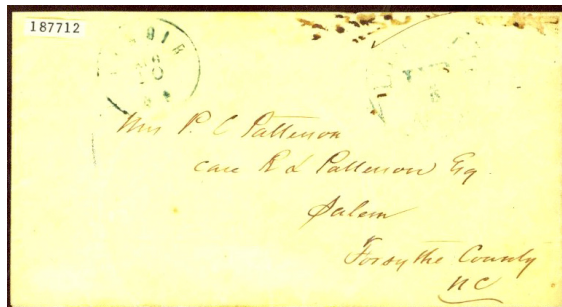 187712
Mrs P. C Patterson
care R L Patterson Esq
Salem
Forsythe County
NC